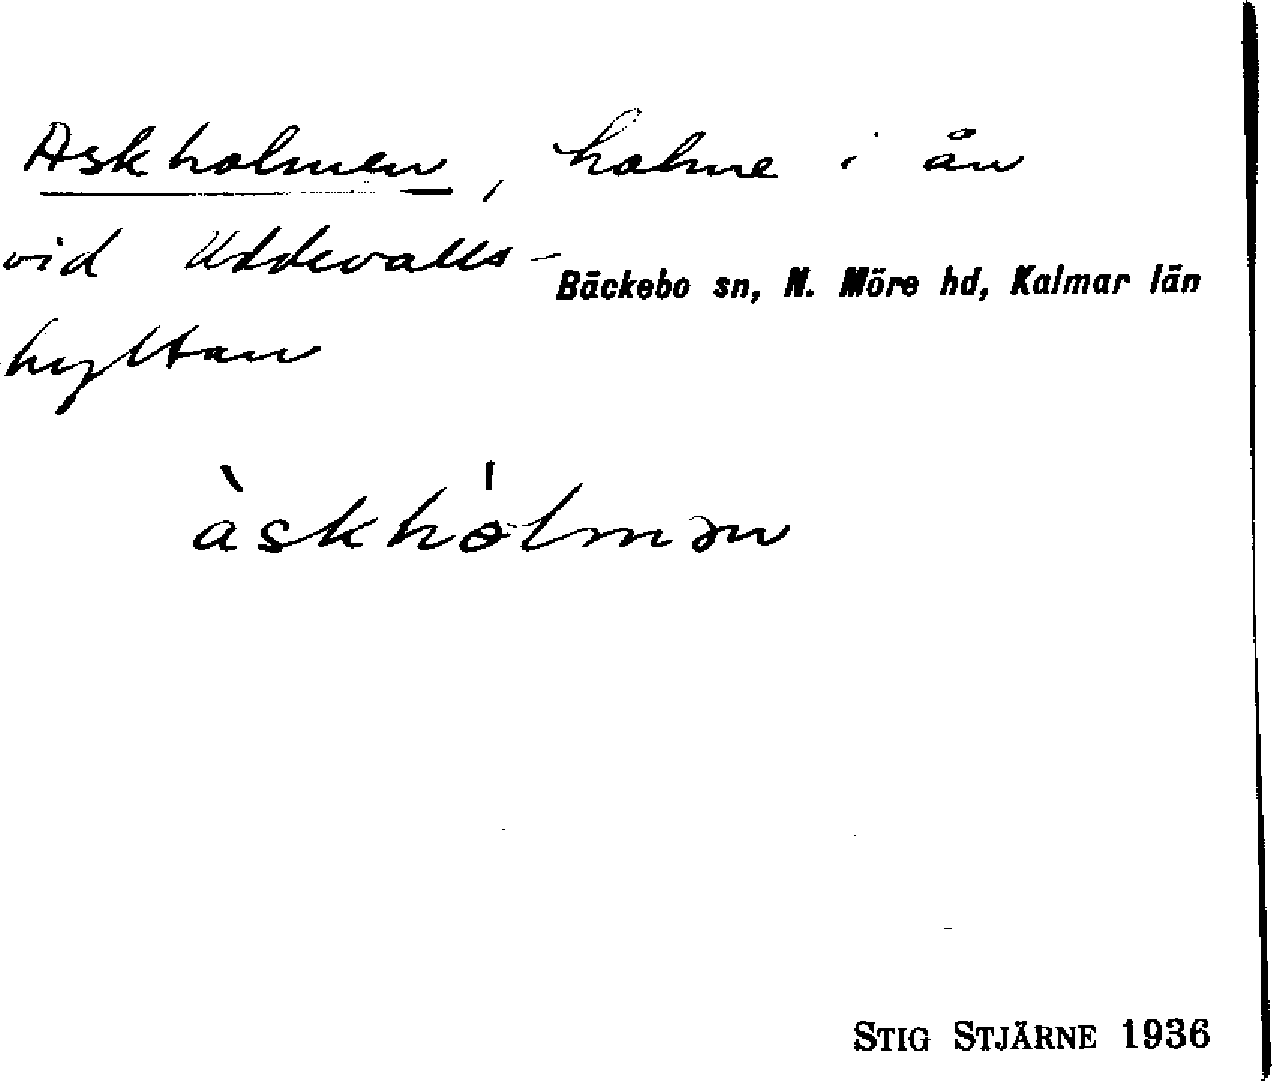 Askholmen, holme i ån
vid Uddevalls-
Bäckebo sn, N. Möre hd, Kalmar län
hyltan
àskhólmən
STIG STJÄRNE 1936